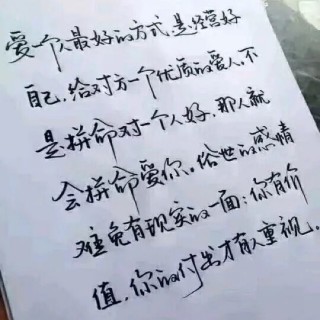 爱一个人最好的方式,是经营好
自己,给对方一个优质的爱人,不
是拼命对一个人好,那人就
会拼命爱你。俗世的感情
难免有现实的一面:你有价
值,你的付出才有人重视。